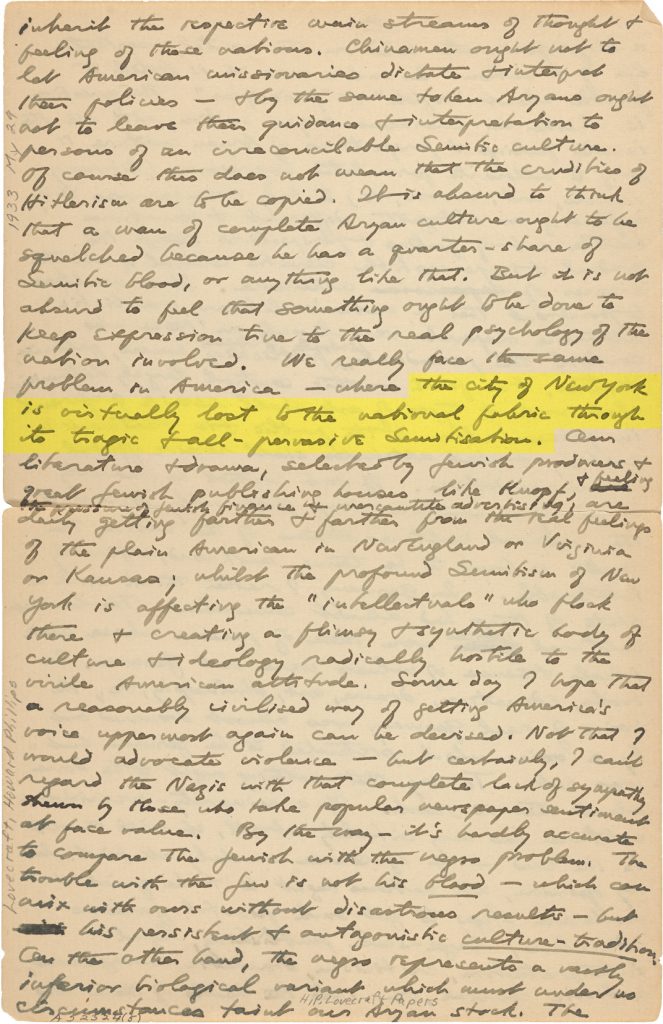 inherit the respective main streams of thought &
feeling of those nations. Chinamen ought not to
let American missionaries dictate & interpret
their policies — & by the same token Aryans ought
not to leave their guidance & interpretation to
persons of an irreconcilable Semitic culture.
Of course this does not mean that the crudities of
Hitlerism are to be copied. It is absurd to think
that a man of complete Aryan culture ought to be
squelched because he has a quarter-share of
Semitic blood, or anything like that. But it is not
absurd to feel that something ought to be done to
keep expression true to the real psychology of the
nation involved. We really face the same
problem in America — where the city of New York
is virtually lost to the national fabric through
its tragic & all-pervasive Semitisation. Our
literature & drama, selected by Jewish producers &
great Jewish publishing houses like Knopf, & feeling
the pressure of Jewish finance & mercantile advertising, are
daily getting farther & farther from the real feelings
of the plain American in New England or Virginia
or Kansas; whilst the profound Semitism of New
York is affecting the "intellectuals" who flock
there & creating a flimsy & synthetic body of
culture & ideology radically hostile to the
virile American attitude. Some day I hope that
a reasonably civilised way of getting America's
voice uppermost again can be devised. Not that I
would advocate violence — but certainly, I can't
regard the Nazis with that complete lack of sympathy
shewn by those who take popular newspaper sentiment
at face value. By the way — it's hardly accurate
to compare the Jewish with the negro problem. The
trouble with the Jew is not his blood — which can
mix with ours without disastrous results — but
his persistent & antagonistic culture-tradition.
On the other hand, the negro represents a vastly
inferior biological variant which must under no
circumstances taint our Aryan stock. The
1933 My 29
Lovecraft, Howard Phillips
H.P. Lovecraft Papers
A 32324(8)